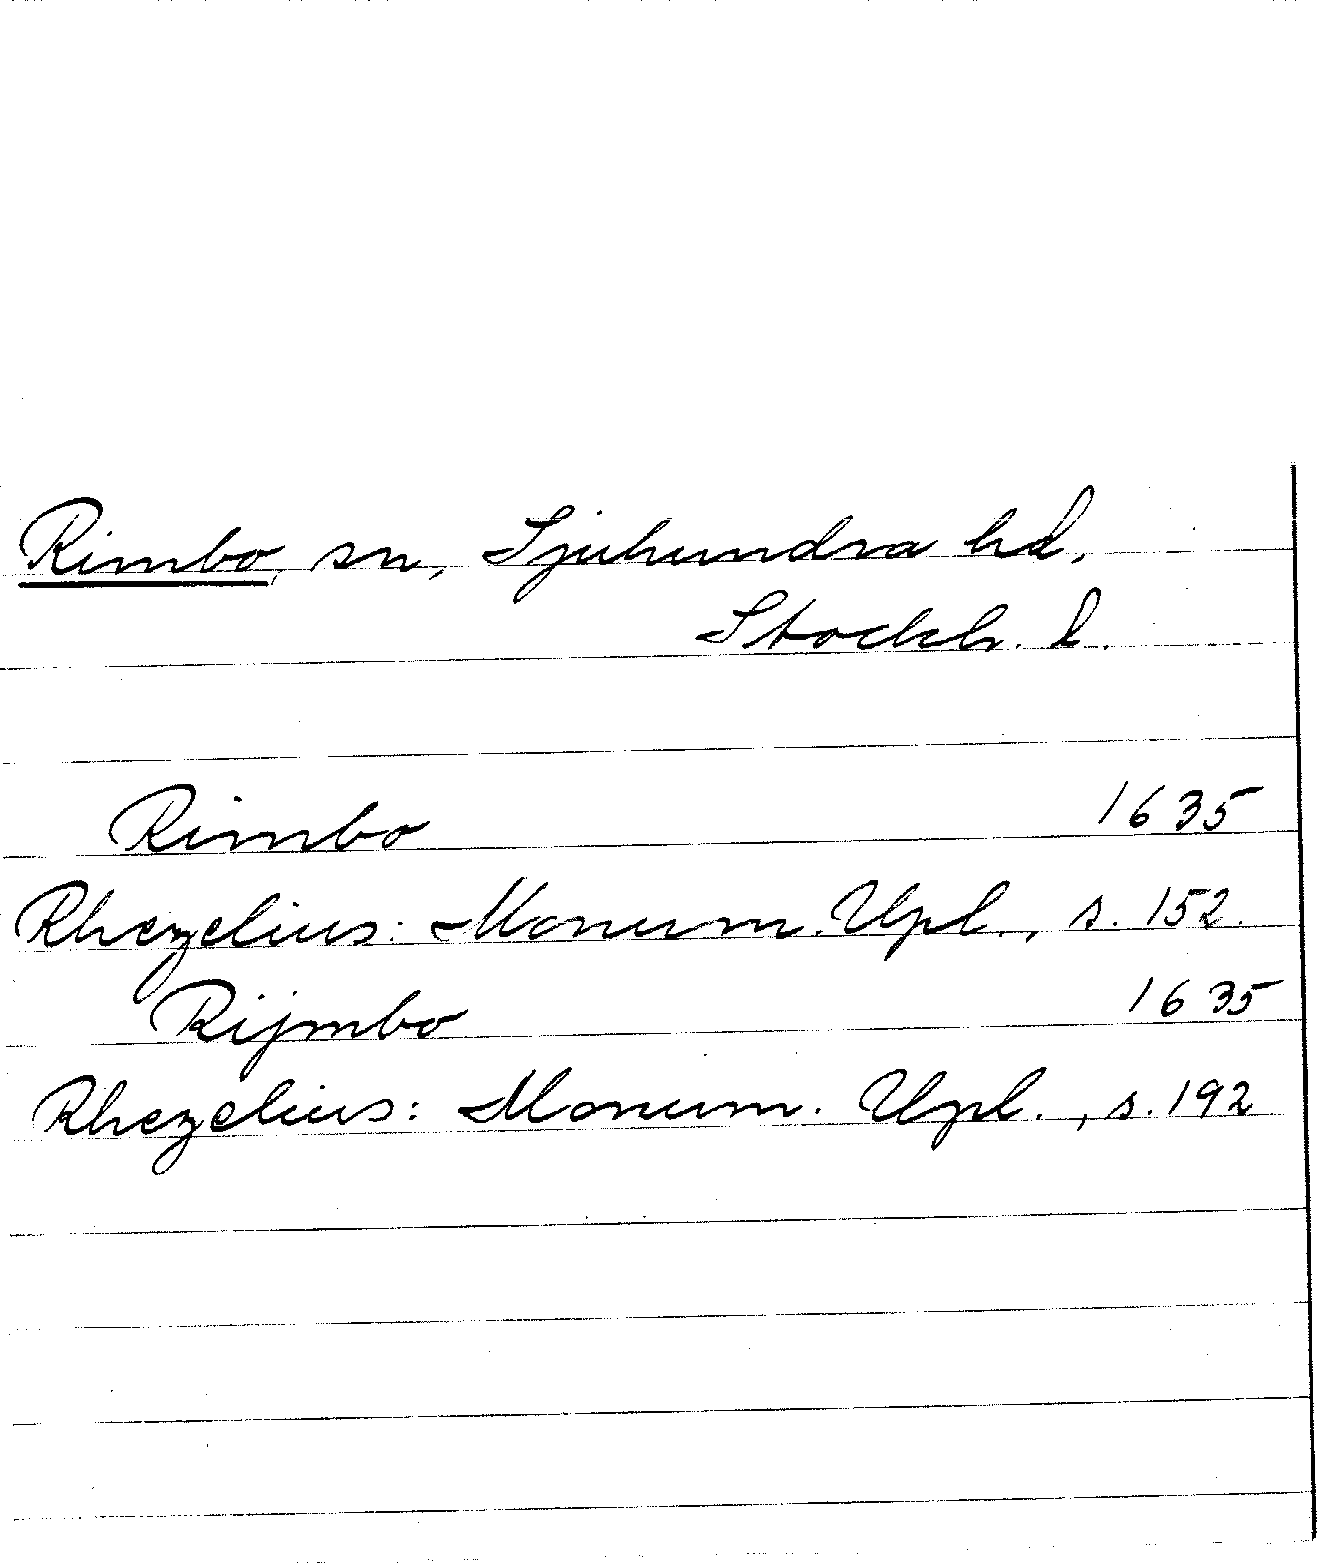 Rimbo, sn, Sjuhundra hd,
Stockh. l.
Rimbo 1635
Rhezelius: Monum. Upl., s. 152.
Rijmbo 1635
Rhezelius: Monum. Upl., s. 192